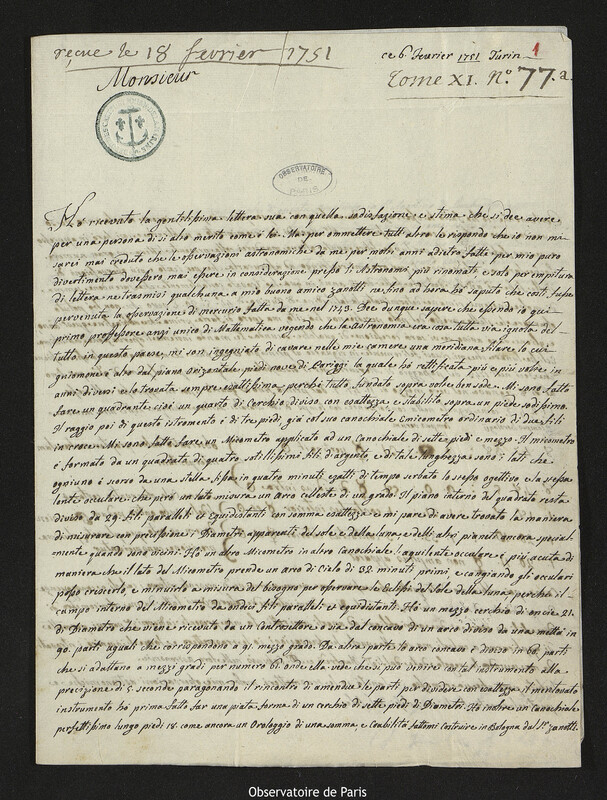 reçue le 18 fevrier 1751
ce 6 Fevrier 1751 Turin 1
Monsieur
Tome XI. N.º 77.a
OBSERVATOIRE
DE
PARIS
Ho ricevuto la gentilissima lettera sua con quella sodisfazione, e stima che si dee avere
per una persona di si alto merito come è lei. Ma per ommettere tutti altro le rispondo che io non mi
sarei mai creduto che le osservazioni astronomiche da me per molti anni adietro fatte per mio puro
divertimento dovessero mai essere in considerazione presso ti Astronomi più rinomati e solo per impitura
di lettera ne trasmisi qualchuna a mio buono amico zanotti ne fino ad hora ho saputo che costi fusse
pervenuta la osservazione di mercurio fatta da me nel 1743. Dee dunque sapere che essendo io qui
primo professore anzi unico di Mathematica vegendo che la Astronomia era cosa tutta via ignota del
tutto in questo paese, mi son ingegniato di cavare nelle mie camere una meridiana filare lo cui
gniomone è alto dal piano Orizontale piedi nove di Pariggi la quale ho rettificata più e più volte in
anni diversi e lo trovata sempre esattissima perche il tutto fundato sopra volte ben sode. Mi sono fatto
fare un quadrante cioe un quarto di Cerchio diviso con esattezza e stabilito sopra un piede sodissimo.
Il raggio poi di questo istromento è di tre piedi, già col suo canochiale Emicometro ordinario di due fili
in croce. Mi sono fatto fare un Micometro applicato ad un Canochiale di sette piedi e mezzo. Il micometro
è formato da un quadrato di quatro sottilissimi fili d'argento, e di tale lunghezza sono i lati che
ogniuno è scorso da una stella fissa in quatro minuti esatti di tempo serbato lo stesso ogettivo e la stessa
lente occulare che però un lato misura un arco celeste di un grado. Il piano interno del quadrato resta
diviso da 29 fili paralleli et Equidistanti con somma esattezza e mi pare di avere trovato la maniera
di misurare con precissione i Diametri apparenti del sole e della luna e delli altri pianeti ancora special
mente quando sono vicini. Ho un altro Micometro in altro Canochiale: la quilente occulare è più acuta di
maniera che il lato del Micometro prende un arco di Cielo di 32 minuti primi, e cangiando gli occulari
posso crescerlo, e minuirlo a misura del bisogno per osservare le Eclissi del sole, e della luna, perche il
campo interno del Micometro dà undici fili paralleli et equidistanti. Ho un mezzo cerchio di oncie 21.
di Diametro che viene ricevuto da un Controsettore o sia dal concavo di un arco diviso da una metta in
90. parti uguali che corrispondono a 91. mezzi gradi. Da altra parte lo arco concavo è diviso in 60. parti
che si adattano a mezzi gradi per numero 61 onde ella vede che si può venire con tal instrumento alla
precizione di 5. seconde paragonando il rincontro di amendue le parti per dividere con esattezza il mentovato
instrumento ho prima fatto far una piata forma di un cerchio di sette piedi di Diametri. Ho inoltre un Canochiale
perfettissimo lungo piedi 18. come ancora un Orologgio di una somma, e stabilità fattomi Costruire in Bologna dal Sr. zanotti.
Observatoire de Paris